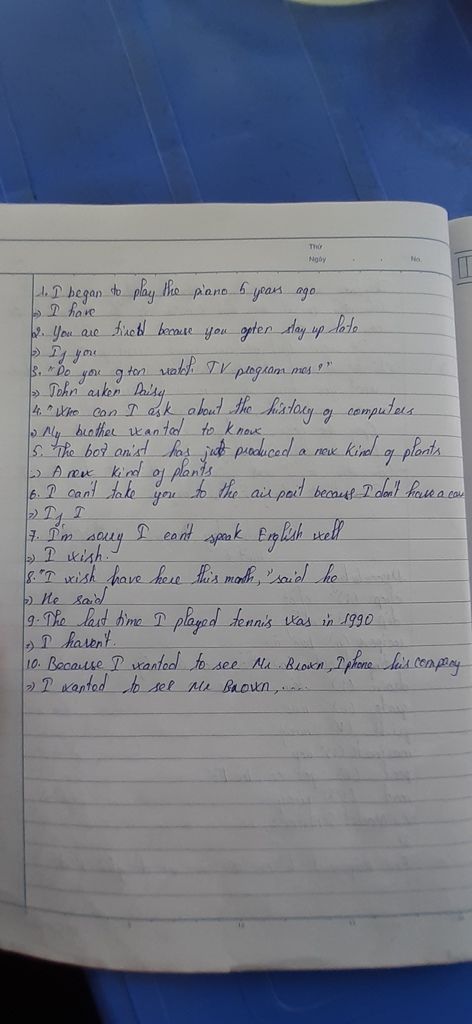 Thứ
Ngày . . No.
1. I began to play the piano 5 years ago
=> I have
2. You are tired because you often stay up late
=> If you
3. "Do you often watch TV program mes?"
=> John asken Daisy
4. "Who can I ask about the history of computers
=> My brother wanted to know
5. The bot anist has just produced a new kind of plants
=> A new kind of plants
6. I can't take you to the air port because I don't have a car
=> If I
7. I'm sorry I can't speak English well
=> I wish.
8. "I wish have here this month," said he
=> He said
9. The last time I played tennis was in 1990
=> I haven't.
10. Because I wanted to see Mr. Brown, I phone his company
=> I wanted to see Mr Brown, ....